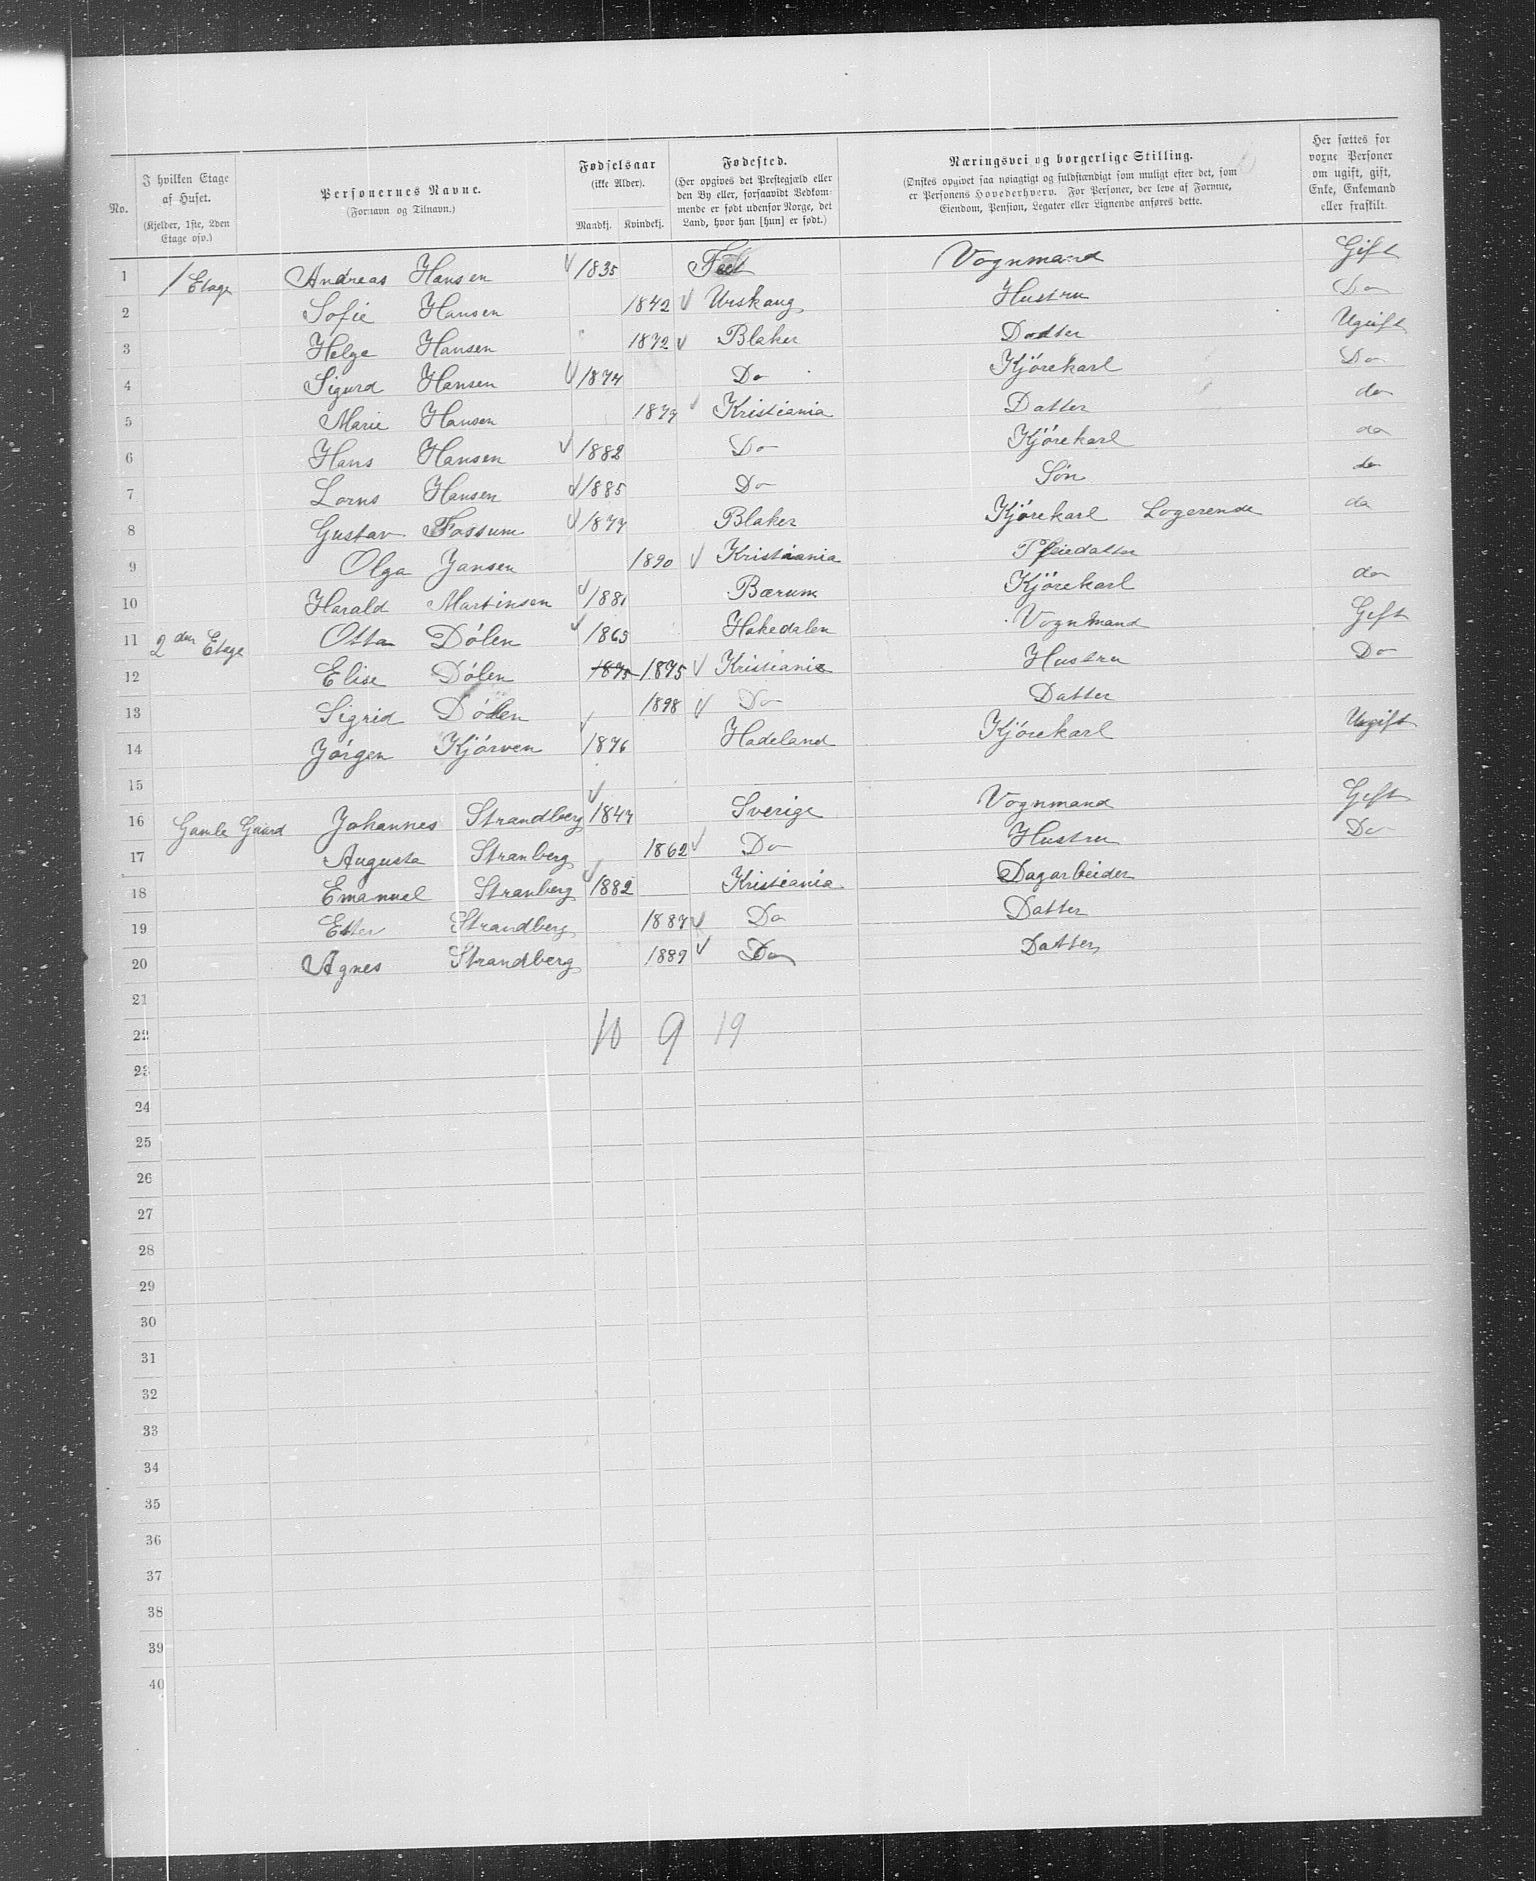 No.
I hvilken Etage af Huset.
(Kjelder, 1ste, 2den Etage osv.)
Personernes Navne.
(Fornavn og Tilnavn.)
Fødselsaar
(ikke Alder).
Mandkj. Kvindekj.
Fødested.
(Her opgives det Prestegjæld eller
den By eller, forsaavidt Vedkom-
mende er født udenfor Norge, det
Land, hvor han [hun] er født.)
Næringsvei og borgerlige Stilling.
(Ønskes opgivet saa nøiagtigt og fuldstændigt som muligt efter det, som
er Personens Hovederhverv. For Personer, der leve af Formue,
Eiendom, Pension, Legater eller Lignende anføres dette.
Her sættes for
voxne Personer
om ugift, gift,
Enke, Enkemand
eller fraskilt.
1 1 Etage Andreas Hansen 1835 Fet Vognmand Gift
2 Sofie Hansen 1842 Urskaug Hustru Do
3 Helga Hansen 1872 Blaker Datter Ugift
4 Sigurd Hansen 1874 Do Kjörekarl Do
5 Marie Hansen 1879 Kristiania Datter do
6 Hans Hansen 1882 Do Kjörekarl do
7 Lorns Hansen 1885 Do Sön do
8 Gustav Fossum 1877 Blaker Kjörekarl Logerende do
9 Olga Jansen 1890 Kristiania Pleiedatter
10 Harald Martinsen 1881 Bærum Kjörekarl do
11 2den Etage Otto Dölen 1865 Hakedalen Vognmand Gift
12 Elise Dölen 1875 1875 Kristiania Hustru Do
13 Sigrid Dölen 1898 Do Datter
14 Jörgen Kjörven 1876 Hadeland Kjörekarl Ugift
15
16 Gamle Gaard Johannes Strandberg 1847 Sverige Vognmand Gift
17 Augusta Stranberg 1862 Do Hustru Do
18 Emanuel Stranberg 1882 Kristiania Dagarbeider
19 Ester Strandberg 1887 Do Datter
20 Agnes Strandberg 1889 Do Datter
21
22 10 9 19
23
24
25
26
27
28
29
30
31
32
33
34
35
36
37
38
39
40